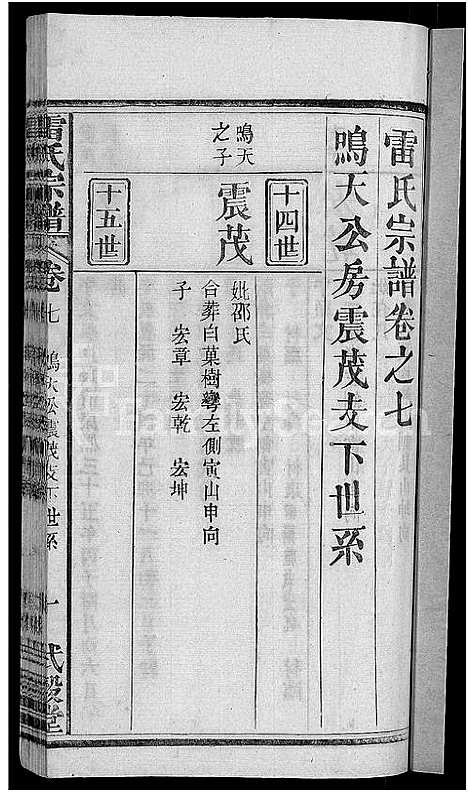 雷氏宗譜卷之七
鳴大公房震茂支下世系
十四世
鳴天之子
震茂
妣邵氏
合葬白菓樹彎左側寅山申向
子 宏章 宏乾 宏坤
十五世
雷氏宗譜
卷七
鳴大公震茂支下世系
一
式穀堂